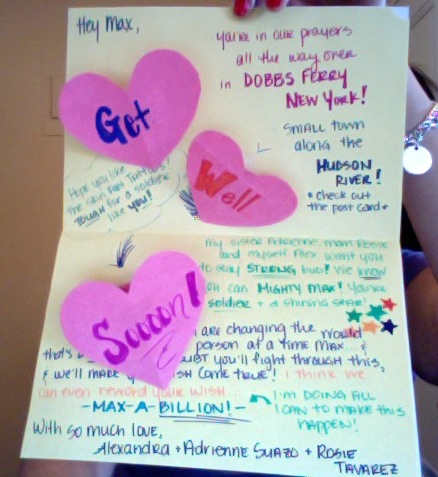 Hey Max,
you're in our prayers
all the way over
in DOBBS FERRY
NEW YORK!
Get
SMALL TOWN
along the
HUDSON
RIVER!
* check out
the post card *
Well
Hope you like
the skin Art Tattoos!
TOUGH for a soldier
like YOU!
my sister Adrienne, mom Rosie
and myself Alex want you
to stay STRONG bud! We KNOW
can MIGHTY MAX! You're
soldier + a shining star!
Sooon!
are changing the world
person at a time MAX... &
that's
you'll fight through this,
& we'll make COME TRUE! I think we
can even reword your WISH...
-MAX-A-BILLION!-
I'M DOING ALL
I CAN TO MAKE THIS
HAPPEN!
With so much love,
Alexandra + Adrienne SUAZO + ROSIE
TAVAREZ